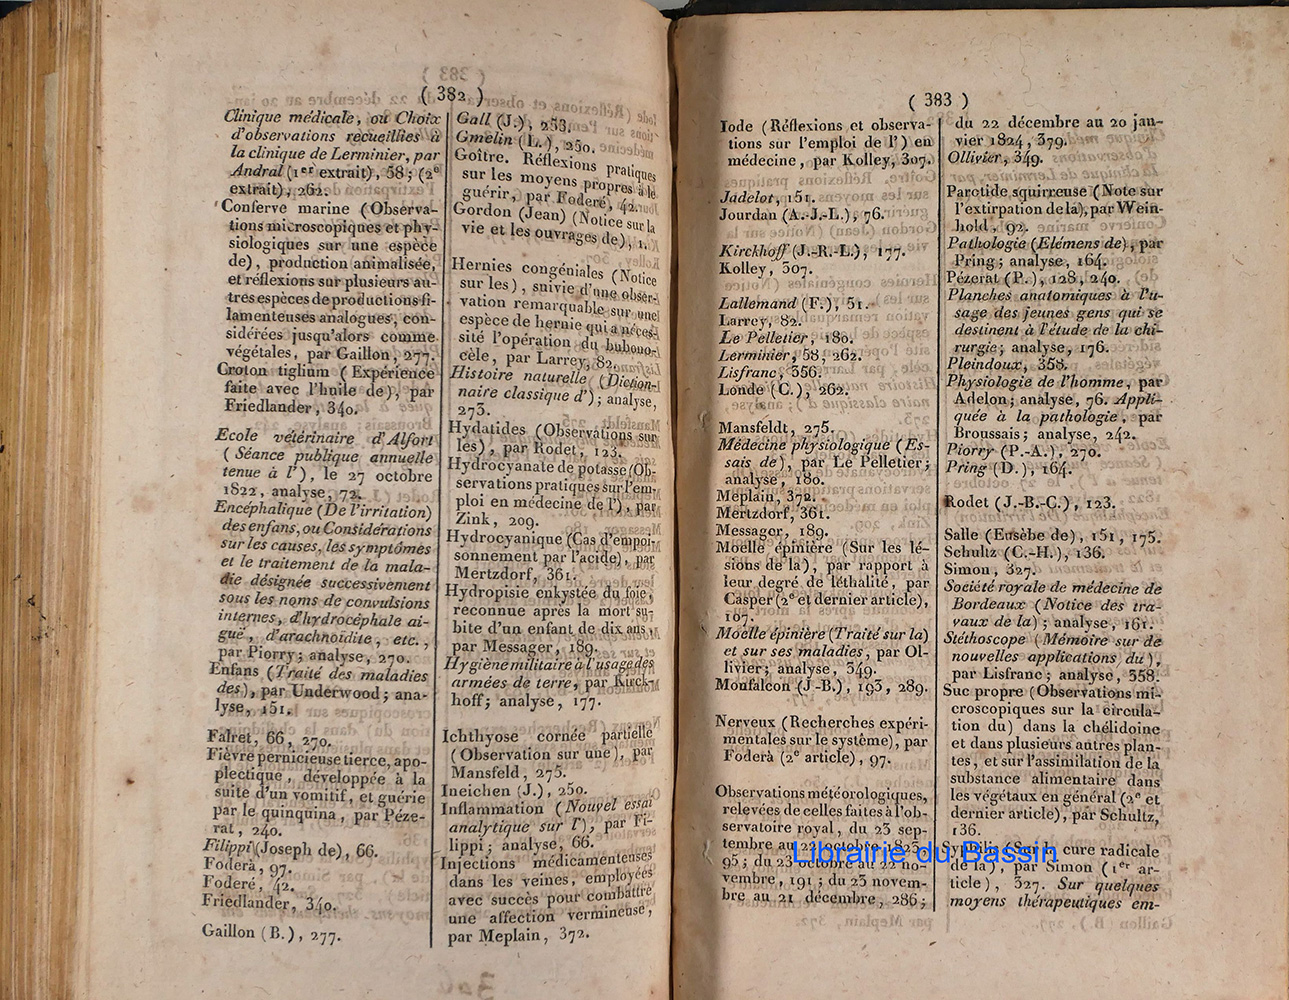 ( 382 )
Clinique médicale, ou Choix
d'observations recueillies à
la clinique de Lerminier, par
Andral (1er extrait), 58; (2e
extrait), 262.
Conferve marine (Observa-
tions microscopiques et phy-
siologiques sur une espèce
de), production animalisée,
et réflexions sur plusieurs au-
tres espèces de productions fi-
lamenteuses analogues, con-
sidérées jusqu'alors comme
végétales, par Gaillon, 277.
Croton tiglium (Expérience
faite avec l'huile de), par
Friedlander, 340.
Ecole vétérinaire d'Alfort
(Séance publique annuelle
tenue à l'), le 27 octobre
1822, analyse, 72.
Encéphalique (De l'irritation)
des enfans, ou Considérations
sur les causes, les symptômes
et le traitement de la mala-
die désignée successivement
sous les noms de convulsions
internes, d'hydrocéphale ai-
guë, d'arachnoïdite, etc.,
par Piorry; analyse, 270.
Enfans (Traité des maladies
des), par Underwood; ana-
lyse, 151.
Falret, 66, 270.
Fièvre pernicieuse tierce, apo-
plectique, développée à la
suite d'un vomitif, et guérie
par le quinquina, par Péze-
rat, 240.
Filippi (Joseph de), 66.
Foderà, 97.
Foderé, 42.
Friedlander, 340.
Gaillon (B.), 277.
Gall (J.), 253.
Gmelin (L.), 250.
Goître. Réflexions pratiques
sur les moyens propres à le
guérir, par Foderé, 42.
Gordon (Jean) (Notice sur la
vie et les ouvrages de), 1.
Hernies congéniales (Notice
sur les), suivie d'une obser-
vation remarquable sur une
espèce de hernie qui a néces-
sité l'opération du bubono-
cèle, par Larrey, 82.
Histoire naturelle (Diction-
naire classique d'); analyse,
273.
Hydatides (Observations sur
les), par Rodet, 123.
Hydrocyanate de potasse (Ob-
servations pratiques sur l'em-
ploi en médecine de l'), par
Zink, 209.
Hydrocyanique (Cas d'empoi-
sonnement par l'acide), par
Mertzdorf, 361.
Hydropisie enkystée du foie,
reconnue après la mort su-
bite d'un enfant de dix ans,
par Messager, 189.
Hygiène militaire à l'usage des
armées de terre, par Kirck-
hoff; analyse, 177.
Ichthyose cornée partielle
(Observation sur une), par
Mansfeld, 275.
Ineichen (J.), 250.
Inflammation (Nouvel essai
analytique sur l'), par Fi-
lippi; analyse, 66.
Injections médicamenteuses
dans les veines, employées
avec succès pour combattre
une affection vermineuse,
par Meplain, 372.
( 383 )
Iode (Réflexions et observa-
tions sur l'emploi de l') en
médecine, par Kolley, 307.
Jadelot, 151.
Jourdan (A.-J.-L.), 76.
Kirckhoff (J.-R.-L.), 177.
Kolley, 307.
Lallemand (F.), 51.
Larrey, 82.
Le Pelletier, 180.
Lerminier, 58, 262.
Lisfranc, 356.
Londe (C.), 262.
Mansfeldt, 275.
Médecine physiologique (Es-
sais de), par Le Pelletier;
analyse, 180.
Meplain, 372.
Mertzdorf, 361.
Messager, 189.
Moelle épinière (Sur les lé-
sions de la), par rapport à
leur degré de léthalité, par
Casper (2e et dernier article),
107.
Moelle épinière (Traité sur la)
et sur ses maladies, par Ol-
livier; analyse, 349.
Monfalcon (J.-B.), 193, 289.
Nerveux (Recherches expéri-
mentales sur le système), par
Foderà (2e article), 97.
Observations météorologiques,
relevées de celles faites à l'ob-
servatoire royal, du 23 sep-
tembre au 22 octobre 1823,
95; du 23 octobre au 22 no-
vembre, 191; du 23 novem-
bre au 21 décembre, 286;
du 22 décembre au 20 jan-
vier 1824, 379.
Ollivier, 349.
Parotide squirreuse (Note sur
l'extirpation de la), par Wein-
hold, 92.
Pathologie (Elémens de), par
Pring; analyse, 164.
Pézerat (P.), 128, 240.
Planches anatomiques à l'u-
sage des jeunes gens qui se
destinent à l'étude de la chi-
rurgie; analyse, 176.
Pleindoux, 358.
Physiologie de l'homme, par
Adelon; analyse, 76. Appli-
quée à la pathologie, par
Broussais; analyse, 242.
Piorry (P.-A.), 270.
Pring (D.), 164.
Rodet (J.-B.-C.), 123.
Salle (Eusèbe de), 151, 175.
Schultz (C.-H.), 136.
Simon, 327.
Société royale de médecine de
Bordeaux (Notice des tra-
vaux de la); analyse, 161.
Stéthoscope (Mémoire sur de
nouvelles applications du),
par Lisfranc; analyse, 358.
Suc propre (Observations mi-
croscopiques sur la circula-
tion du) dans la chélidoine
et dans plusieurs autres plan-
tes, et sur l'assimilation de la
substance alimentaire dans
les végétaux en général (2e et
dernier article), par Schultz,
136.
Syphilis (Sur la cure radicale
de la), par Simon (1er ar-
ticle), 327. Sur quelques
moyens thérapeutiques em-
Librairie du Bassin